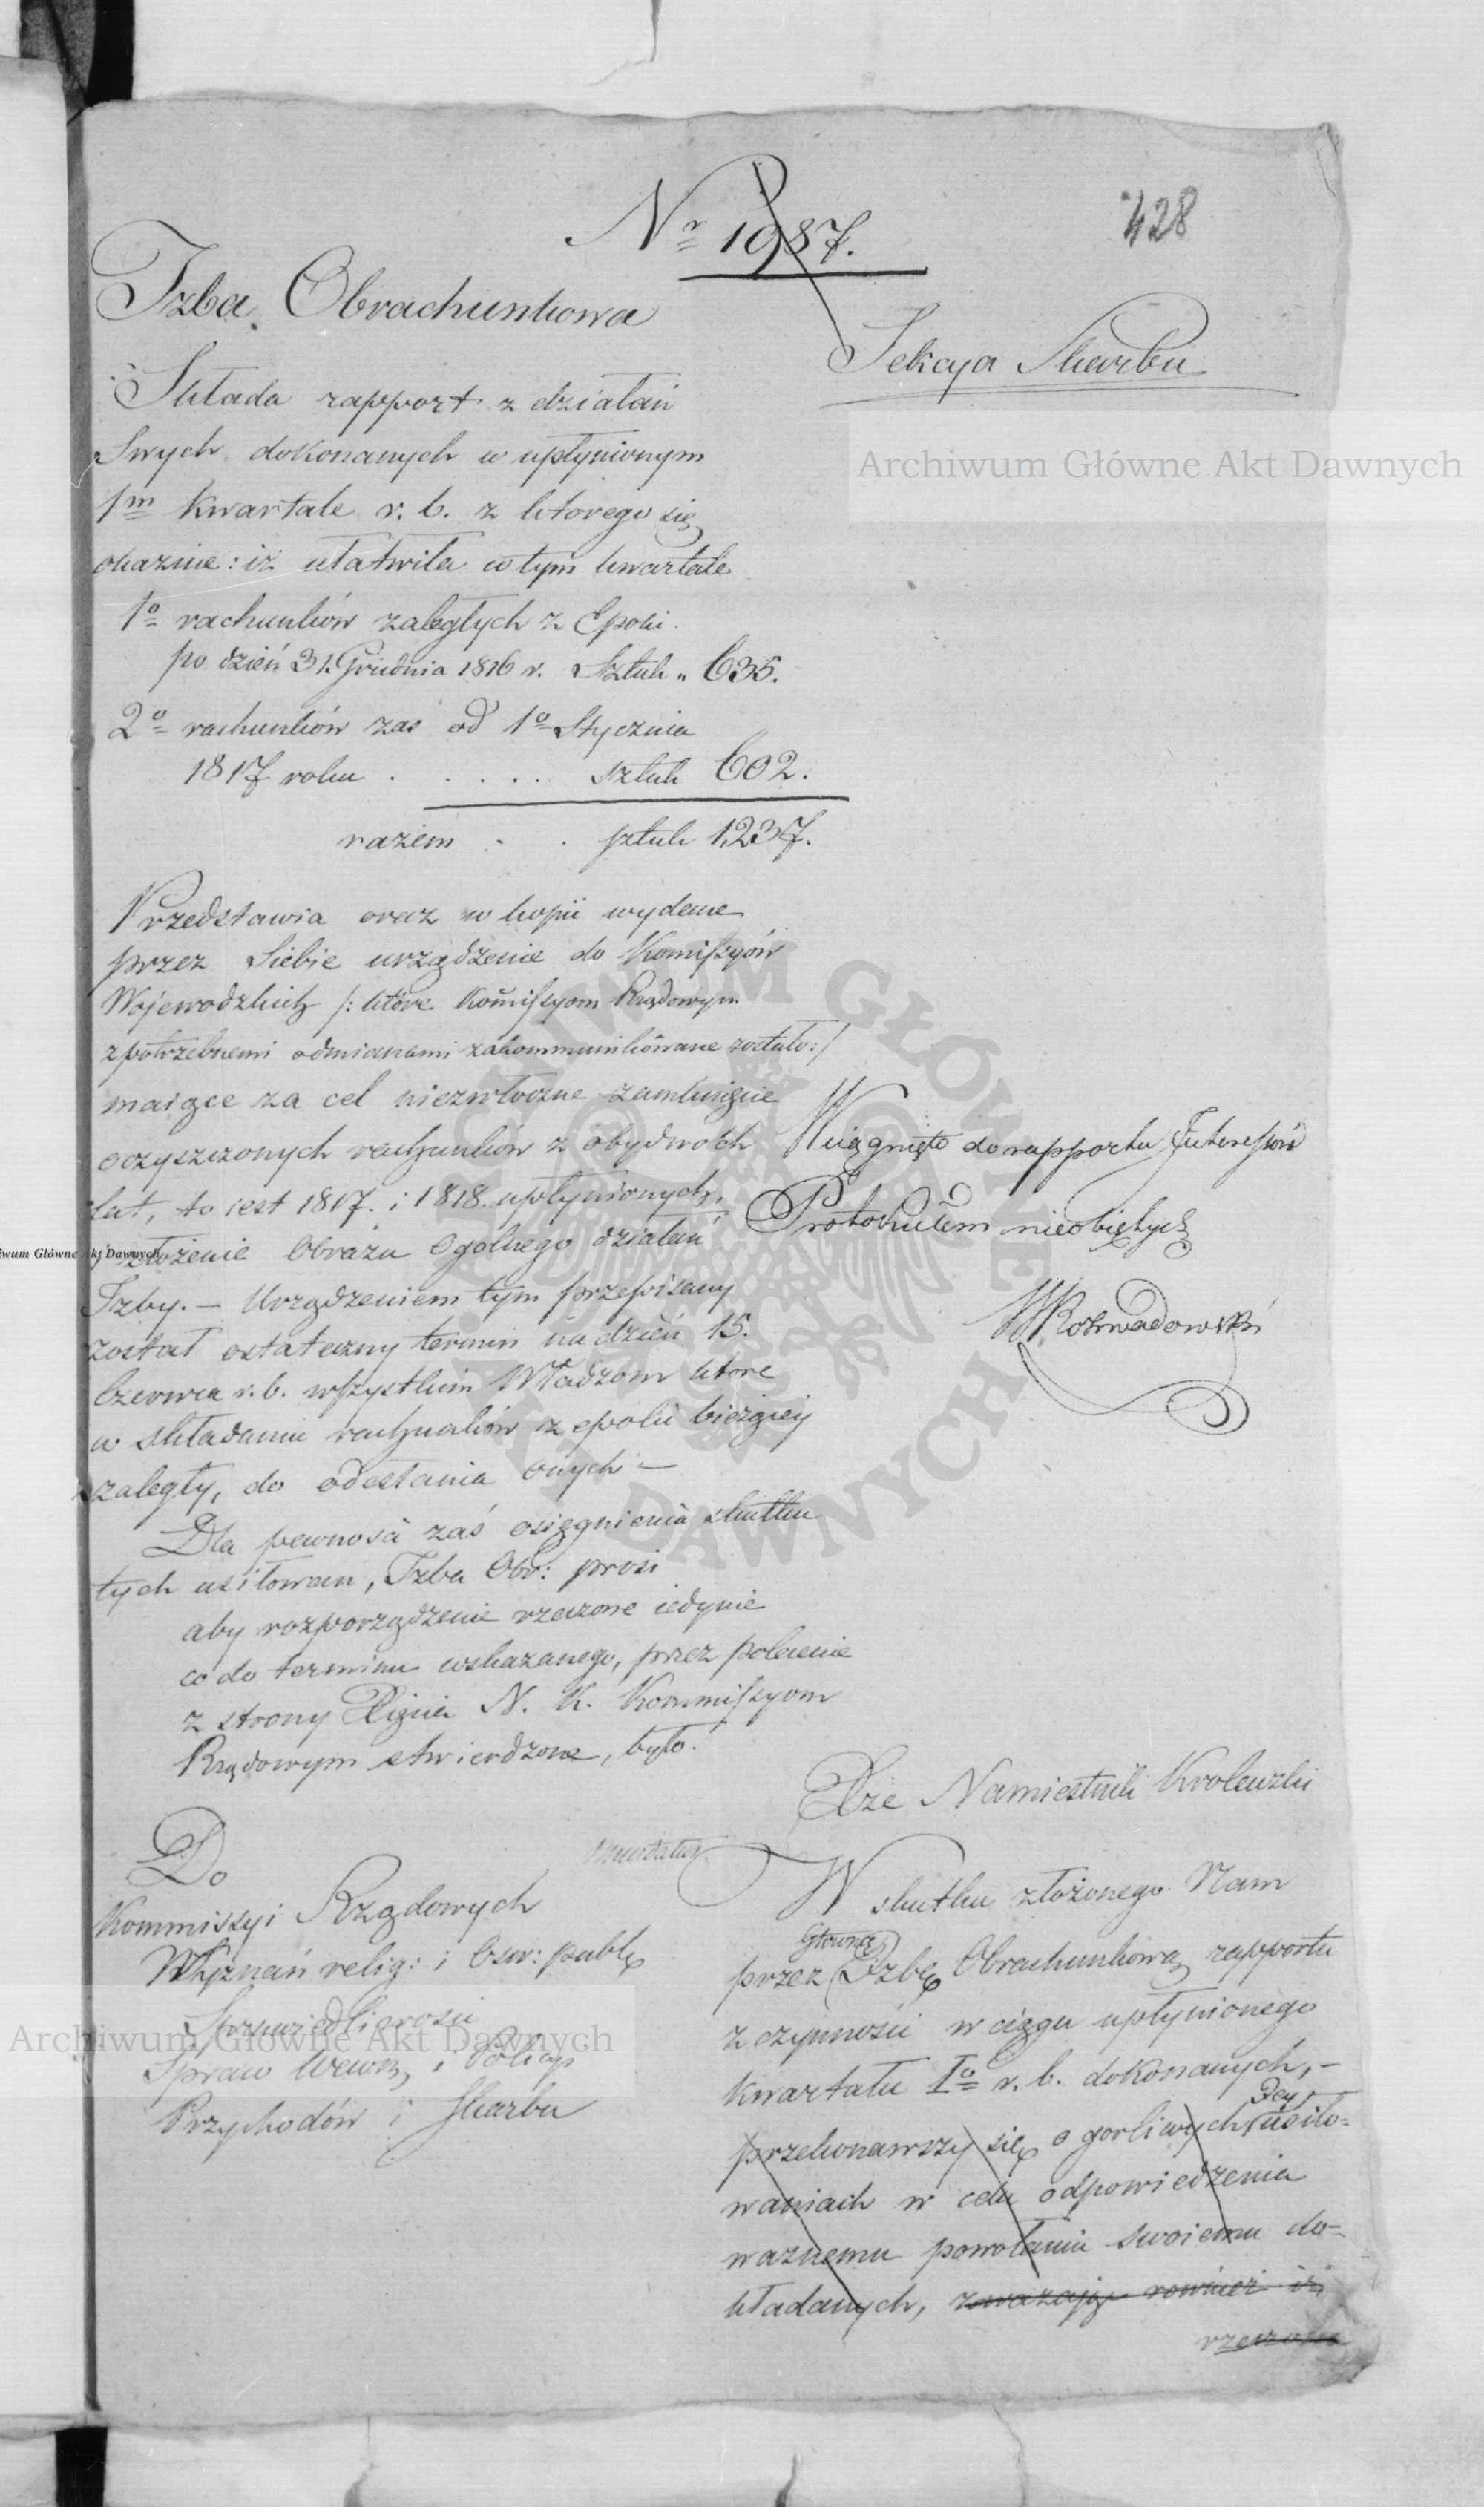 Nr 1987.
428
Izba Obrachunkowa
Sekcya Skarbu
Składa rapport z działań
Swych dokonanych w upłynionym
1m kwartale r. b. z ktorego się
okazuie: iż ułatwiła w tym kwartale
1o rachunków zaległych z Epoki
po dzień 31. Grudnia 1816 r. Sztuk „ 635.
2o rachunków zaś od 1o Stycznia
1817 roku . . . . . sztuk 602.
razem . . sztuk 1,237.
Przedstawia oraz w kopii wydane
przez Siebie urządzenie do Kommissyów
Wojewodzkich /: które Kommissyom Rządowym
z potrzebnemi odmianami zakommunikowane zostało :/
maiące za cel niezwłoczne zamknięcie
oczyszczonych rachunków z obydwoch
lat, to iest 1817. i 1818. upłynionych,
i złożenie Obrazu Ogolnego działań
Izby. — Urządzeniem tym przepisany
został ostateczny termin na dzień 15.
Czerwca r. b. wszystkim Władzom które
w składaniu rachunków z epoki bieżącey
zaległy, do odesłania onych —
Dla pewności zaś osiągnienia skutku
tych usiłowan, Izba Obr: prosi
aby rozporządzenie rzeczone iedynie
co do terminu wskazanego, przez polecenie
z strony Xięcia N. K. Kommissyom
Rządowym stwierdzone, było.
Wciągnięto do rapportu Interessów
Protokułem nieobiętych
WRozwadowski
Do
Kommissyi Rządowych
Wyznań relig: i Ośw: publ:
Sprawiedliwości
Spraw Wewn: i Policyi
Przychodów i Skarbu
Xże Namiestnik Krolewski
Mundatur
W skutku złożonego Nam
przez Główną Izbę Obrachunkową rapportu
z czynności w ciągu upłynionego
kwartału Io r. b. dokonanych, —
przekonawszy się o gorliwych Jey usiło-
waniach w celu odpowiedzenia
ważnemu powołaniu swoiemu do-
kładanych, zważając rownież iż
rzeczone
Archiwum Główne Akt Dawnych
Archiwum Główne Akt Dawnych
iwum Główne Akt Dawnych
ARCHIWUM GŁÓWNE AKT DAWNYCH